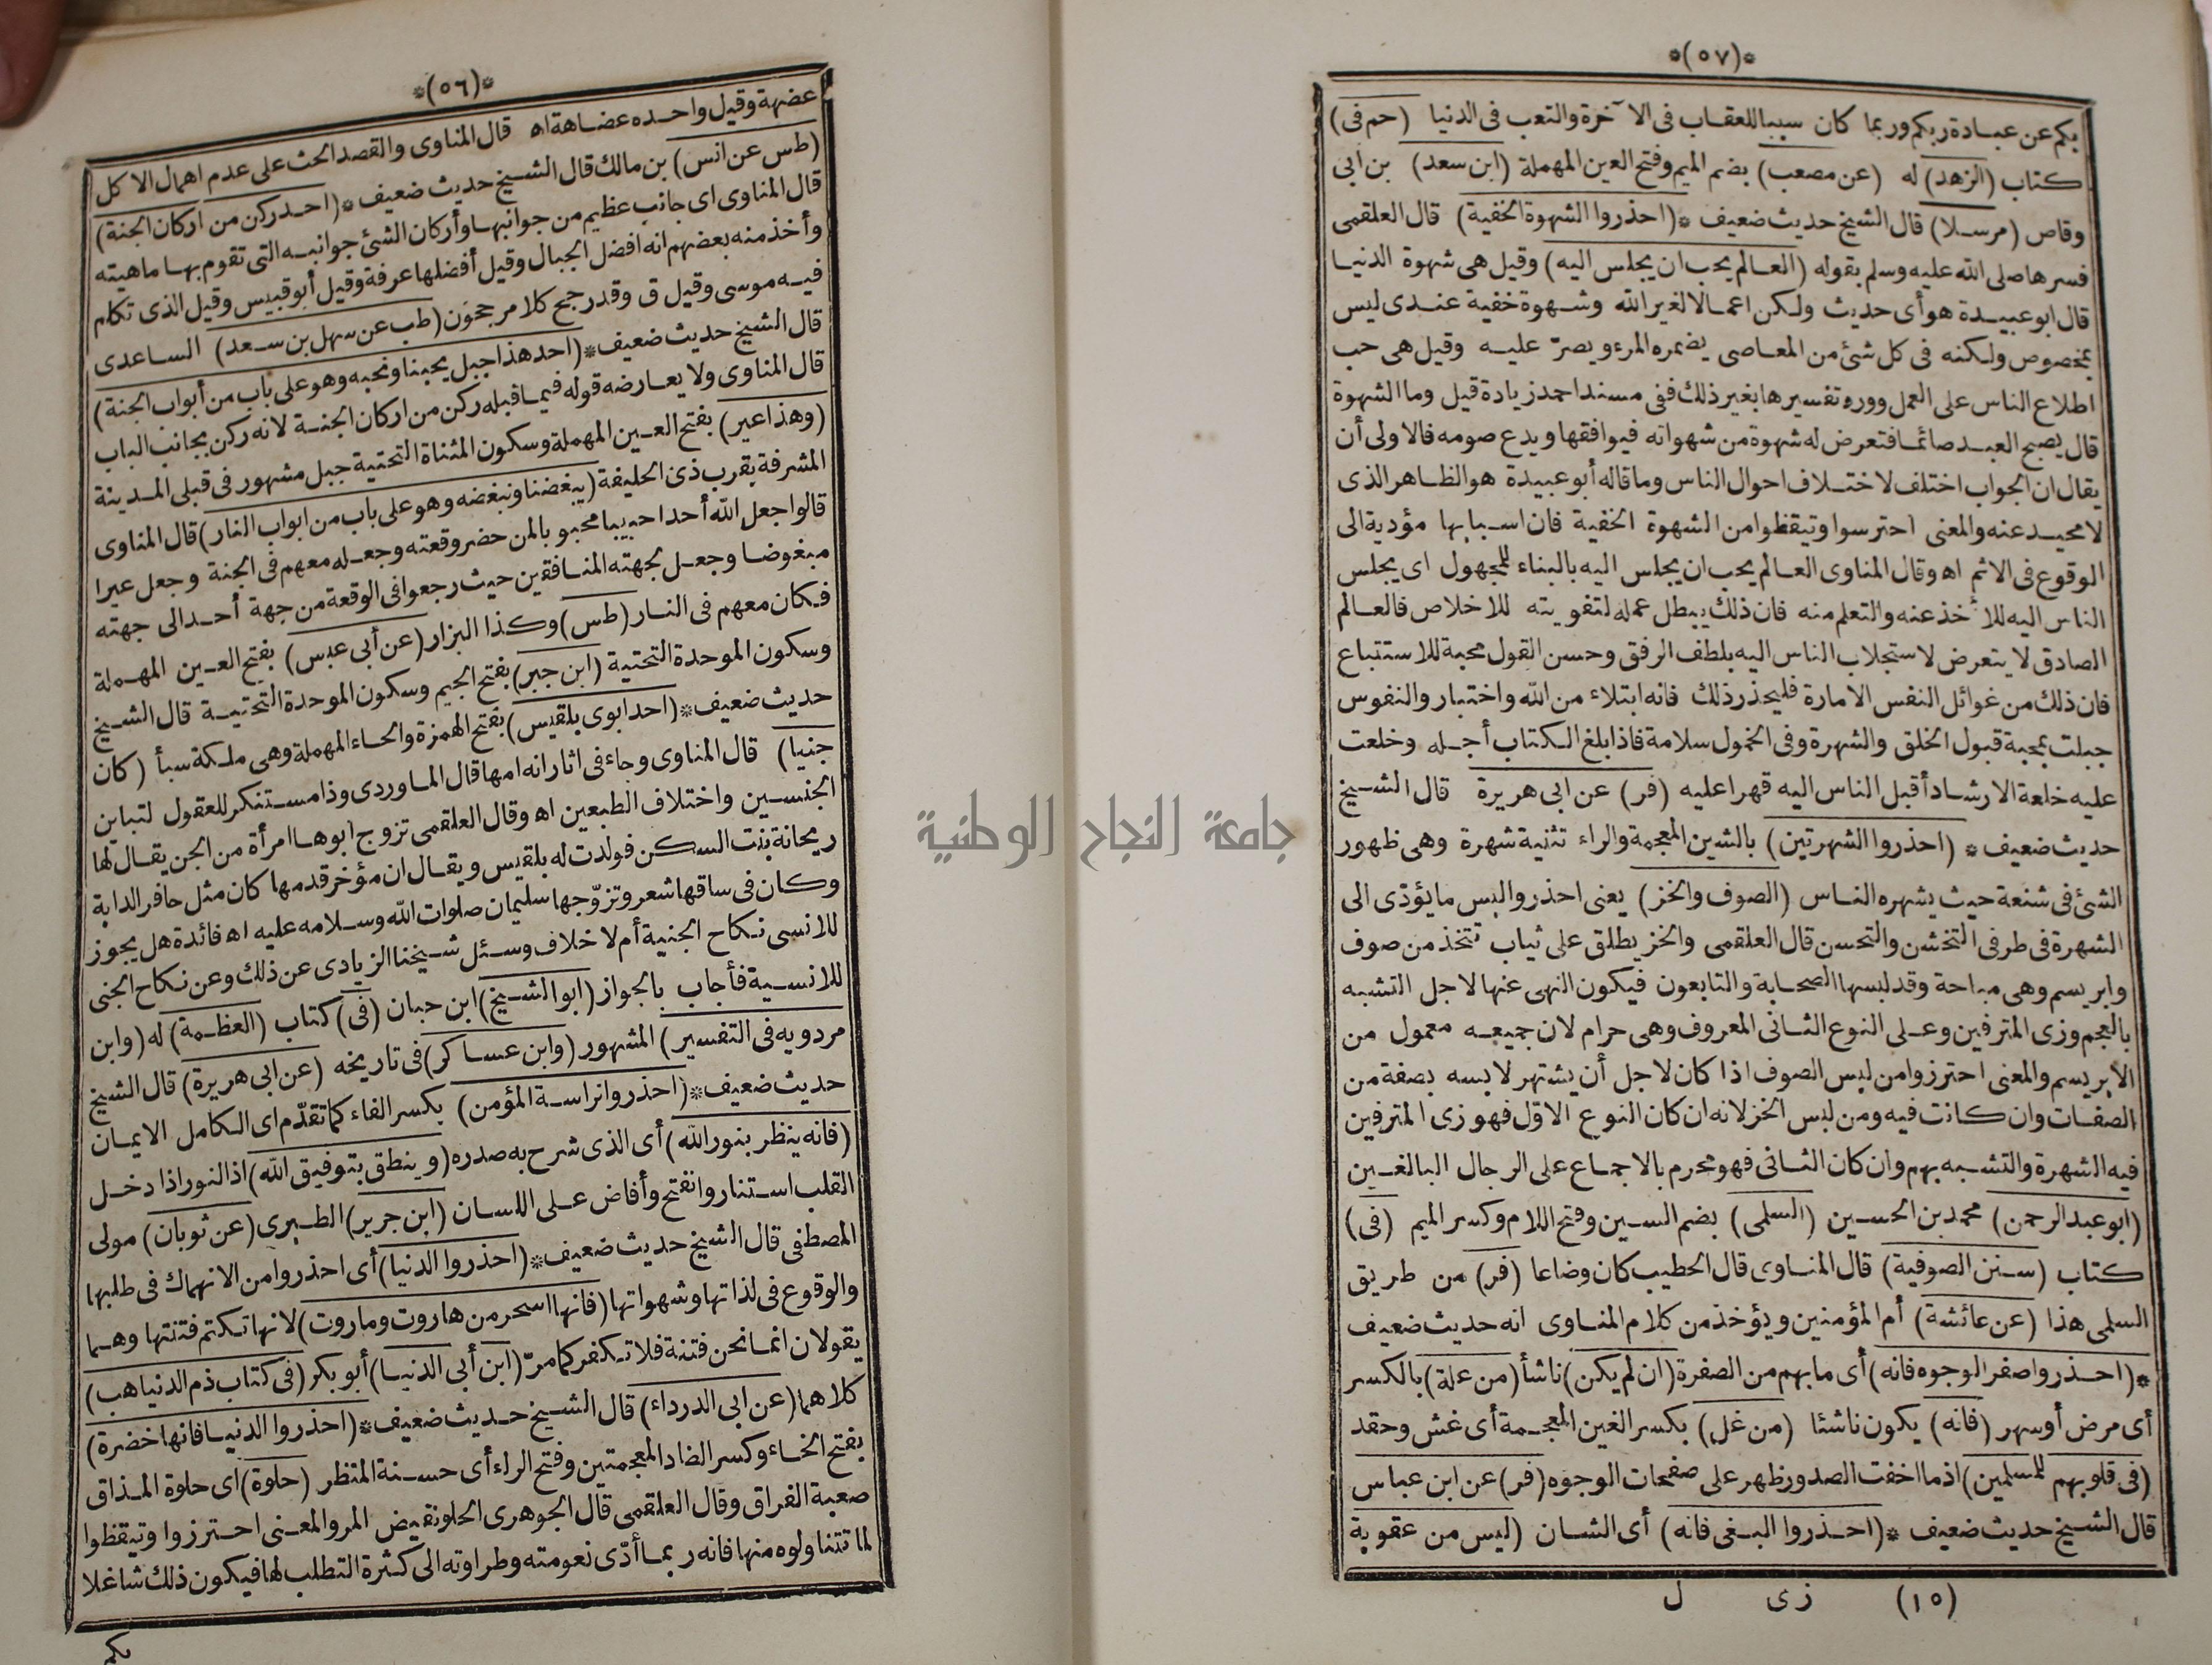 *(٥٦)*
عضهة وقيل واحده عضاهة اه قال المناوى والقصد الحث على عدم اهمال الاكل
(طس عن انس) بن مالك قال الشيخ حديث ضعيف *(احد ركن من اركان الجنة)
قال المناوى اى جانب عظيم من جوانبها وأركان الشئ جوانبه التى تقوم بها ماهيته
وأخذ منه بعضهم انه افضل الجبال وقيل أفضلها عرفة وقيل أبو قبيس وقيل الذى تكلم
فيه موسى وقيل ق وقد رجح كلا مرجحون (طب عن سهل بن سعد) الساعدى
قال الشيخ حديث ضعيف *(احد هذا جبل يحبنا ونحبه وهو على باب من أبواب الجنة)
قال المناوى ولا يعارضه قوله فيما قبله ركن من اركان الجنة لانه ركن بجانب الباب
(وهذا عير) بفتح العين المهملة وسكون المثناة التحتية جبل مشهور فى قبلى المدينة
المشرفة بقرب ذى الحليفة (يبغضنا ونبغضه وهو على باب من ابواب النار) قال المناوى
قالوا جعل الله أحدا حبيبا محبوبا لمن حضر وقعته وجعله معهم فى الجنة وجعل عيرا
مبغوضا وجعل بجهته المنافقين حيث رجعوا فى الوقعة من جهة أحد الى جهته
فكان معهم فى النار (طس) وكذا البزار (عن أبى عبس) بفتح العين المهملة
وسكون الموحدة التحتية (ابن جبر) بفتح الجيم وسكون الموحدة التحتية قال الشيخ
حديث ضعيف *(احد ابوى بلقيس) بفتح الهمزة والحاء المهملة وهى ملكة سبأ (كان
جنيا) قال المناوى وجاء فى اثار انه امها قال الماوردى وذا مستنكر للعقول لتباين
الجنسين واختلاف الطبعين اه وقال العلقمى تزوج ابوها امرأة من الجن يقال لها
ريحانة بنت السكن فولدت له بلقيس ويقال ان مؤخر قدمها كان مثل حافر الدابة
وكان فى ساقها شعر وتزوّجها سليمان صلوات الله وسلامه عليه اه فائدة هل يجوز
للانسى نكاح الجنية أم لا خلاف وسئل شيخنا الزيادى عن ذلك وعن نكاح الجنى
للانسية فأجاب بالجواز (ابو الشيخ) ابن حبان (فى) كتاب (العظمة) له (وابن
مردويه فى التفسير) المشهور (وابن عساكر) فى تاريخه (عن ابى هريرة) قال الشيخ
حديث ضعيف *(احذروا فراسة المؤمن) بكسر الفاء كما تقدّم اى الكامل الايمان
(فانه ينظر بنور الله) أى الذى شرح به صدره (وينطق بتوفيق الله) اذ النور اذا دخل
القلب استنار وانفتح وأفاض على اللسان (ابن جرير) الطبرى (عن ثوبان) مولى
المصطفى قال الشيخ حديث ضعيف *(احذروا الدنيا) أى احذروا من الانهماك فى طلبها
والوقوع فى لذاتها وشهواتها (فانها اسحر من هاروت وماروت) لانها تكتم فتنتها وهما
يقولان انما نحن فتنة فلا تكفر كما مرّ (ابن أبى الدنيا) أبو بكر (فى كتاب ذم الدنيا هب)
كلاهما (عن ابى الدرداء) قال الشيخ حديث ضعيف *(احذروا الدنيا فانها خضرة)
بفتح الخاء وكسر الضاد المعجمتين وفتح الراء أى حسنة المنظر (حلوة) اى حلوة المذاق
صعبة الفراق وقال العلقمى قال الجوهرى الحلو نقيض المر والمعنى احترزوا وتيقظوا
لما تتناولوه منها فانه ربما أدّى نعومته وطراوته الى كثرة التطلب لها فيكون ذلك شاغلا
بكم
*(٥٧)*
بكم عن عبادة ربكم وربما كان سببا للعقاب فى الاخرة والتعب فى الدنيا (حم فى)
كتاب (الزهد) له (عن مصعب) بضم الميم وفتح العين المهملة (ابن سعد) بن ابى
وقاص (مرسلا) قال الشيخ حديث ضعيف *(احذروا الشهوة الخفية) قال العلقمى
فسرها صلى الله عليه وسلم بقوله (العالم يحب ان يجلس اليه) وقيل هى شهوة الدنيا
قال ابو عبيدة هو أى حديث ولكن اعمالا لغير الله وشهوة خفية عندى ليس
بمخصوص ولكنه فى كل شئ من المعاصى يضمره المرء ويصرّ عليه وقيل هى حب
اطلاع الناس على العمل وورد تفسيرها بغير ذلك ففى مسند احمد زيادة قيل وما الشهوة
قال يصبح العبد صائما فتعرض له شهوة من شهواته فيوافقها ويدع صومه فالاولى أن
يقال ان الجواب اختلف لاختلاف احوال الناس وما قاله أبو عبيدة هو الظاهر الذى
لا محيد عنه والمعنى احترسوا وتيقظوا من الشهوة الخفية فان اسبابها مؤدية الى
الوقوع فى الاثم اه وقال المناوى العالم يحب ان يجلس اليه بالبناء للمجهول اى يجلس
الناس اليه للاخذ عنه والتعلم منه فان ذلك يبطل عمله لتفويته للاخلاص فالعالم
الصادق لا يتعرض لاستجلاب الناس اليه بلطف الرفق وحسن القول محبة للاستتباع
فان ذلك من غوائل النفس الامارة فليحذر ذلك فانه ابتلاء من الله واختبار والنفوس
جبلت بمحبة قبول الخلق والشهرة وفى الخمول سلامة فاذا بلغ الكتاب أجله وخلعت
عليه خلعة الارشاد أقبل الناس اليه قهرا عليه (فر) عن ابى هريرة قال الشيخ
حديث ضعيف *(احذروا الشهرتين) بالشين المعجمة والراء تثنية شهرة وهى ظهور
الشئ فى شنعة حيث يشهره الناس (الصوف والخز) يعنى احذروا لبس ما يؤدّى الى
الشهرة فى طرفى التخشن والتحسن قال العلقمى والخز يطلق على ثياب تتخذ من صوف
وابريسم وهى مباحة وقد لبسها الصحابة والتابعون فيكون النهى عنها لاجل التشبه
بالعجم وزى المترفين وعلى النوع الثانى المعروف وهى حرام لان جميعه معمول من
الابريسم والمعنى احترزوا من لبس الصوف اذا كان لاجل أن يشتهر لابسه بصفة من
الصفات وان كانت فيه ومن لبس الخز لانه ان كان النوع الاوّل فهو زى المترفين
فيه الشهرة والتشبه بهم وان كان الثانى فهو محرم بالاجماع على الرجال البالغين
(ابو عبد الرحمن) محمد بن الحسين (السلمى) بضم السين وفتح اللام وكسر الميم (فى)
كتاب (سنن الصوفية) قال المناوى قال الخطيب كان وضاعا (فر) من طريق
السلمى هذا (عن عائشة) أم المؤمنين ويؤخذ من كلام المناوى انه حديث ضعيف
*(احذروا صفر الوجوه فانه) أى ما بهم من الصفرة (ان لم يكن) ناشأ (من علة) بالكسر
أى مرض أو سهر (فانه) يكون ناشئا (من غل) بكسر الغين المعجمة أى غش وحقد
(فى قلوبهم للمسلمين) اذ ما اخفت الصدور ظهر على صفحات الوجوه (فر) عن ابن عباس
قال الشيخ حديث ضعيف *(احذروا البغى فانه) أى الشان (ليس من عقوبة
(١٥) زى ل
جامعة النجاح الوطنية